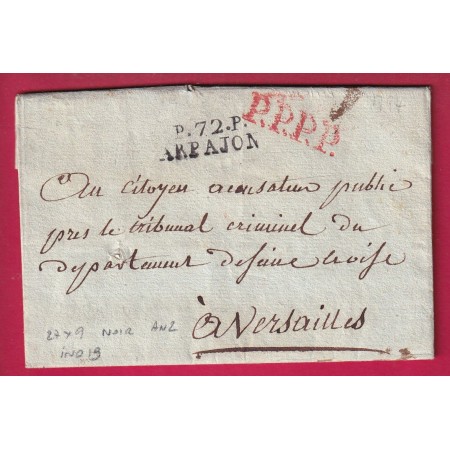 P.72.P.
ARPAJON
P.P.P.P.
Au Citoyen accusateur public
pres le tribunal criminel du
departement de seine et oise
à Versailles
27x9 NOIR AN2
IND 19